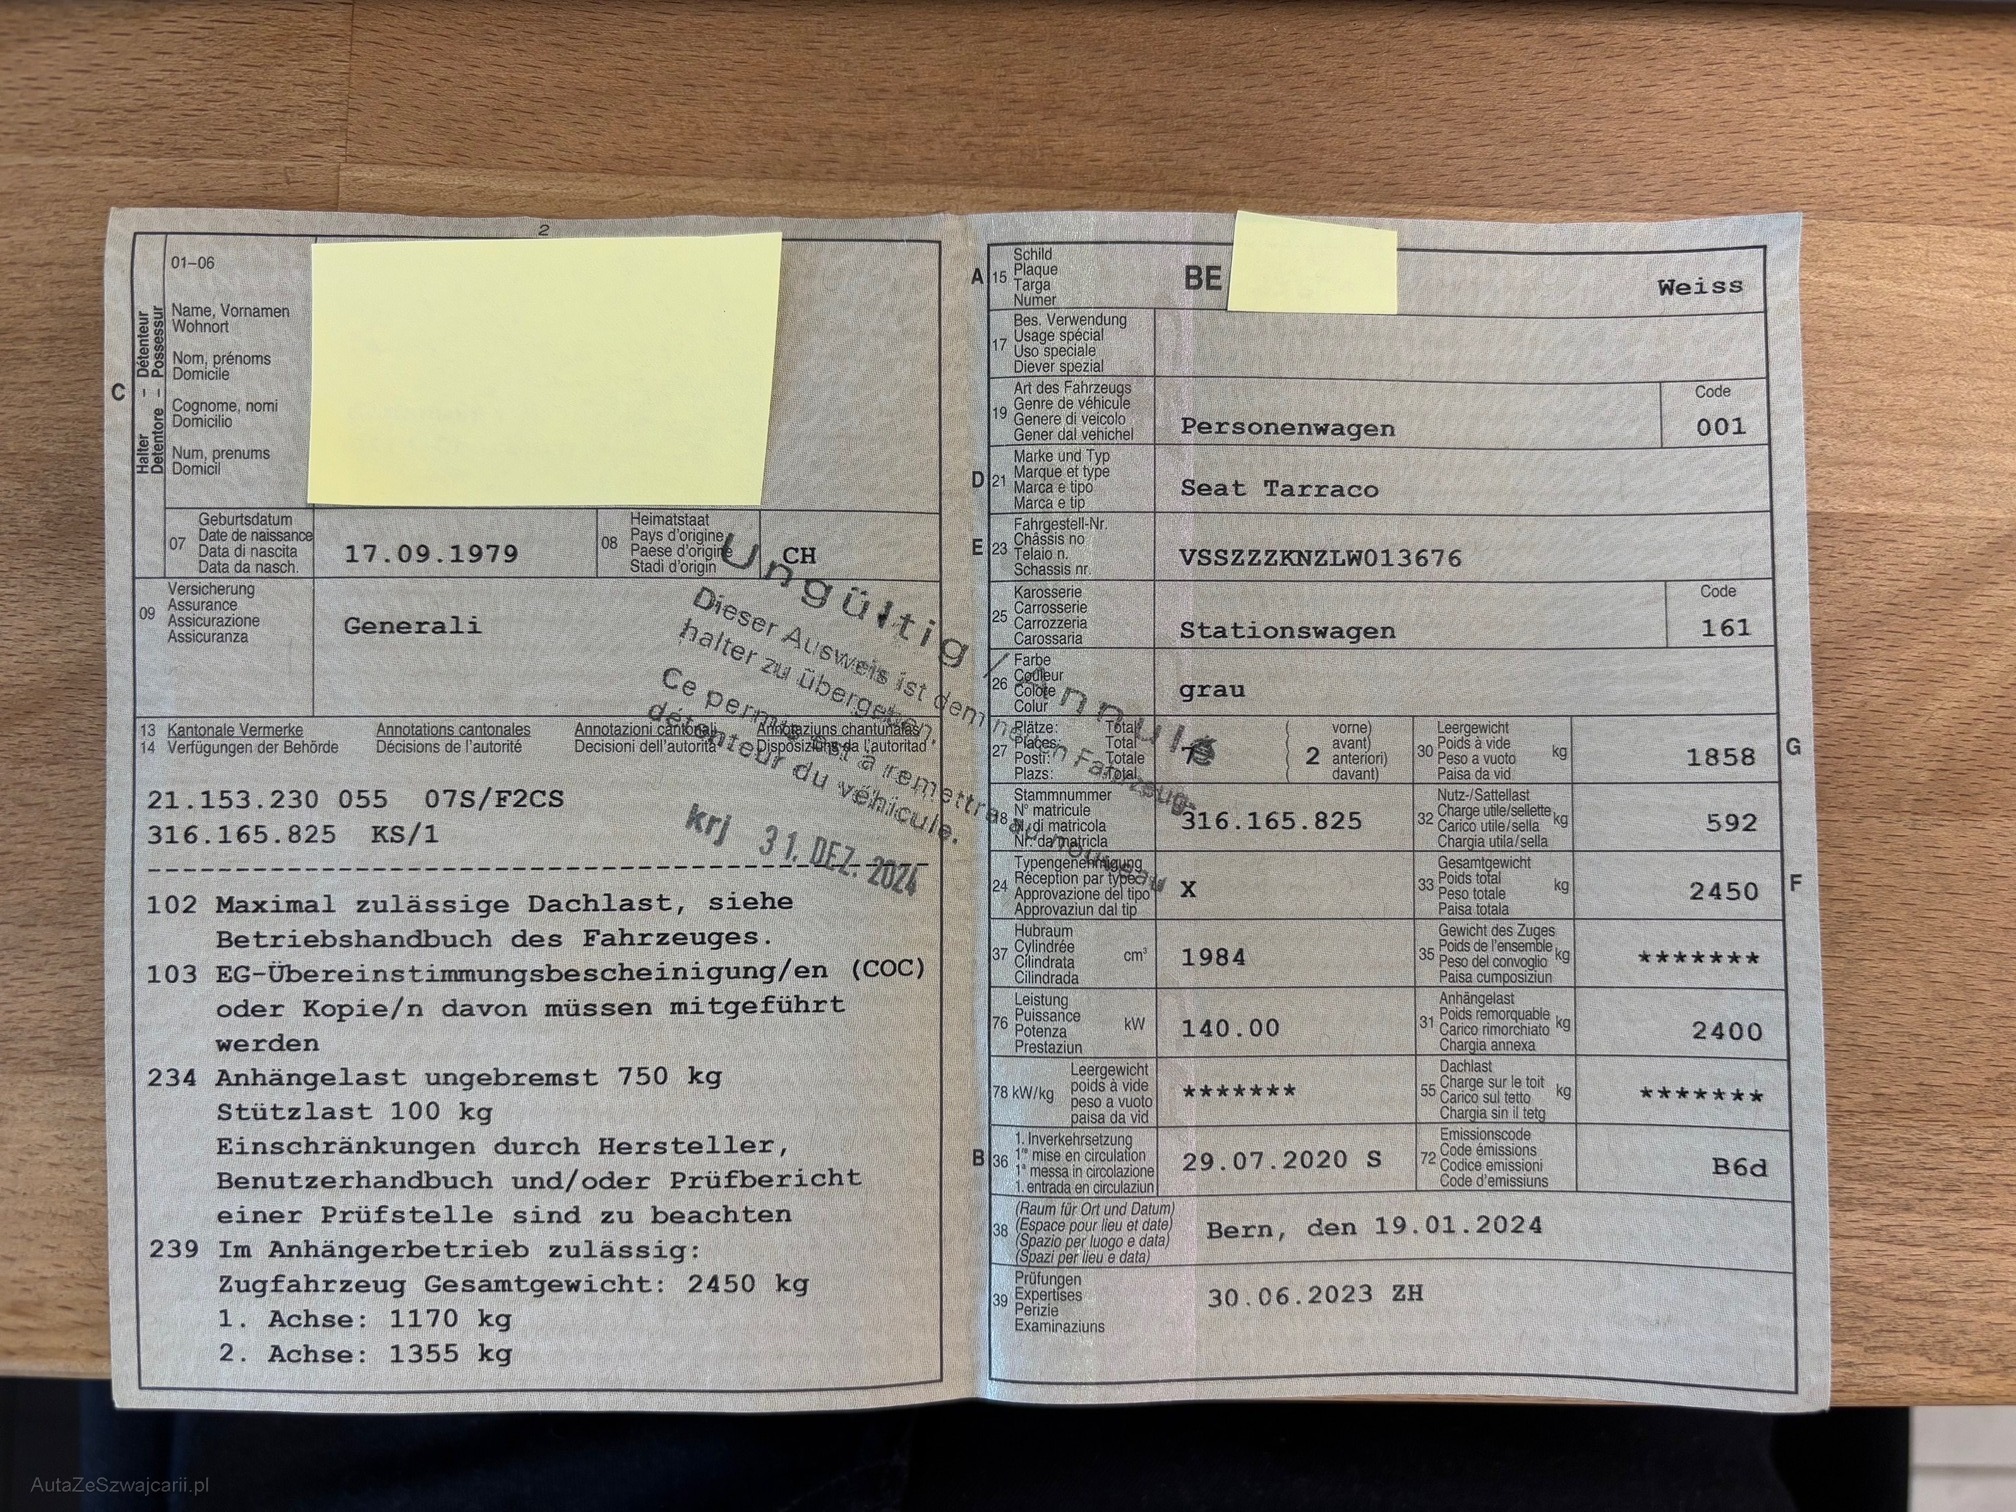 2
01-06
Halter – Détenteur
Detentore – Possessur
Name, Vornamen
Wohnort
Nom, prénoms
Domicile
Cognome, nomi
Domicilio
Num, prenums
Domicil
C
07
Geburtsdatum
Date de naissance
Data di nascita
Data da nasch.
17.09.1979
08
Heimatstaat
Pays d'origine
Paese d'origine
Stadi d'origin
CH
09
Versicherung
Assurance
Assicurazione
Assicuranza
Generali
Ungültig / Annulé
Dieser Ausweis ist dem neuen Fahrzeug-
halter zu übergeben.
Ce permis est à remettre au nouveau
détenteur du véhicule.
krj 31. DEZ. 2024
13 Kantonale Vermerke Annotations cantonales Annotazioni cantonali Annotaziuns chantunalas
14 Verfügungen der Behörde Décisions de l'autorité Decisioni dell'autorità Disposiziuns da l'autoritad
21.153.230 055 07S/F2CS
316.165.825 KS/1
102 Maximal zulässige Dachlast, siehe
Betriebshandbuch des Fahrzeuges.
103 EG-Übereinstimmungsbescheinigung/en (COC)
oder Kopie/n davon müssen mitgeführt
werden
234 Anhängelast ungebremst 750 kg
Stützlast 100 kg
Einschränkungen durch Hersteller,
Benutzerhandbuch und/oder Prüfbericht
einer Prüfstelle sind zu beachten
239 Im Anhängerbetrieb zulässig:
Zugfahrzeug Gesamtgewicht: 2450 kg
1. Achse: 1170 kg
2. Achse: 1355 kg
A
15
Schild
Plaque
Targa
Numer
BE
Weiss
17
Bes. Verwendung
Usage spécial
Uso speciale
Diever spezial
19
Art des Fahrzeugs
Genre de véhicule
Genere di veicolo
Gener dal vehichel
Personenwagen
Code
001
D
21
Marke und Typ
Marque et type
Marca e tipo
Marca e tip
Seat Tarraco
E
23
Fahrgestell-Nr.
Châssis no
Telaio n.
Schassis nr.
VSSZZZKNZLW013676
25
Karosserie
Carrosserie
Carrozzeria
Carossaria
Stationswagen
Code
161
26
Farbe
Couleur
Colore
Colur
grau
27
Plätze: Total
Places: Total
Posti: Totale
Plazs: Total
7
2
vorne)
avant)
anteriori)
davant)
30
Leergewicht
Poids à vide
Peso a vuoto
Paisa da vid
kg
1858
G
18
Stammnummer
N° matricule
N. di matricola
Nr. da matricla
316.165.825
32
Nutz-/Sattellast
Charge utile/sellette
Carico utile/sella
Chargia utila/sella
kg
592
24
Typengenehmigung
Réception par type
Approvazione del tipo
Approvaziun dal tip
X
33
Gesamtgewicht
Poids total
Peso totale
Paisa totala
kg
2450
F
37
Hubraum
Cylindrée
Cilindrata
Cilindrada
cm³
1984
35
Gewicht des Zuges
Poids de l'ensemble
Peso del convoglio
Paisa cumposiziun
kg
*******
76
Leistung
Puissance
Potenza
Prestaziun
kW
140.00
31
Anhängelast
Poids remorquable
Carico rimorchiato
Chargia annexa
kg
2400
78 kW/kg
Leergewicht
poids à vide
peso a vuoto
paisa da vid
*******
55
Dachlast
Charge sur le toit
Carico sul tetto
Chargia sin il tetg
kg
*******
B
36
1. Inverkehrsetzung
1re mise en circulation
1a messa in circolazione
1. entrada en circulaziun
29.07.2020 S
72
Emissionscode
Code émissions
Codice emissioni
Code d'emissiuns
B6d
38
(Raum für Ort und Datum)
(Espace pour lieu et date)
(Spazio per luogo e data)
(Spazi per lieu e data)
Bern, den 19.01.2024
39
Prüfungen
Expertises
Perizie
Examinaziuns
30.06.2023 ZH
AutaZeSzwajcarii.pl